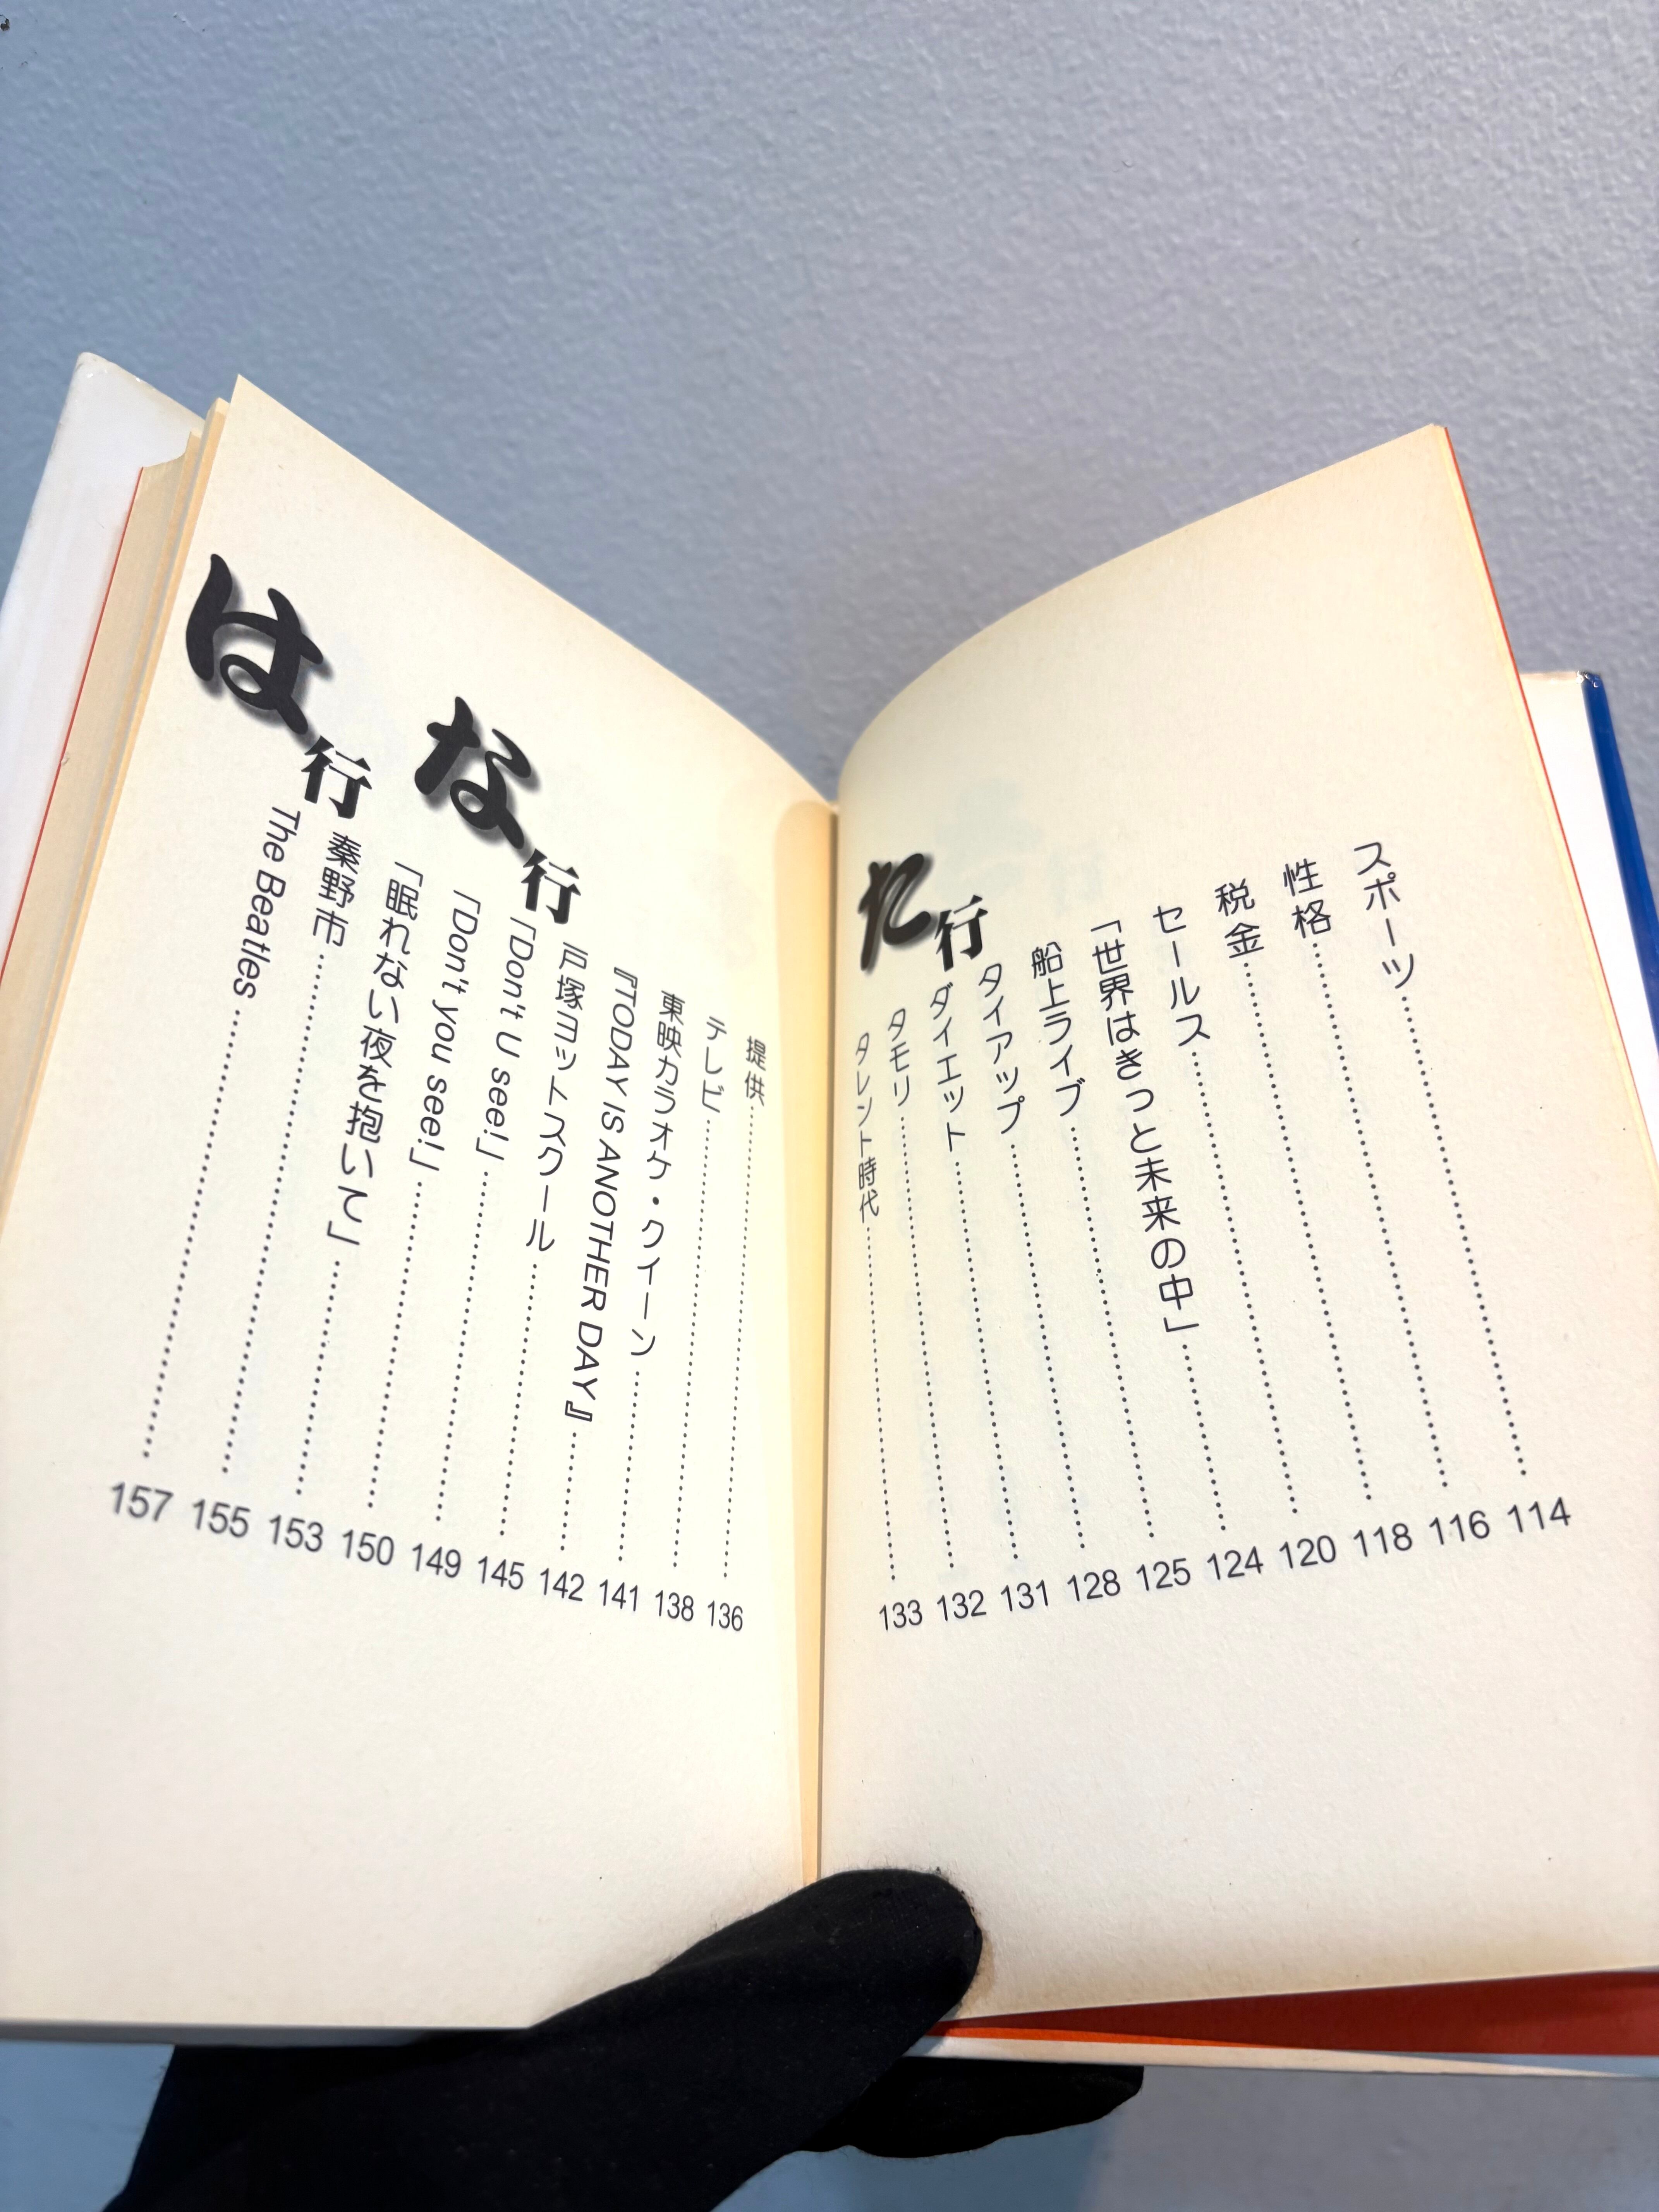 スポーツ……114
性格……116
税金……118
セールス……120
「世界はきっと未来の中」……124
船上ライブ……125
た行
タイアップ……128
ダイエット……131
タモリ……132
タレント時代……133
提供……136
テレビ……138
東映カラオケ・クイーン……141
『TODAY IS ANOTHER DAY』……142
戸塚ヨットスクール……145
「Don't U see!」……149
「Don't you see!」……150
な行
「眠れない夜を抱いて」……153
は行
秦野市……155
The Beatles……157